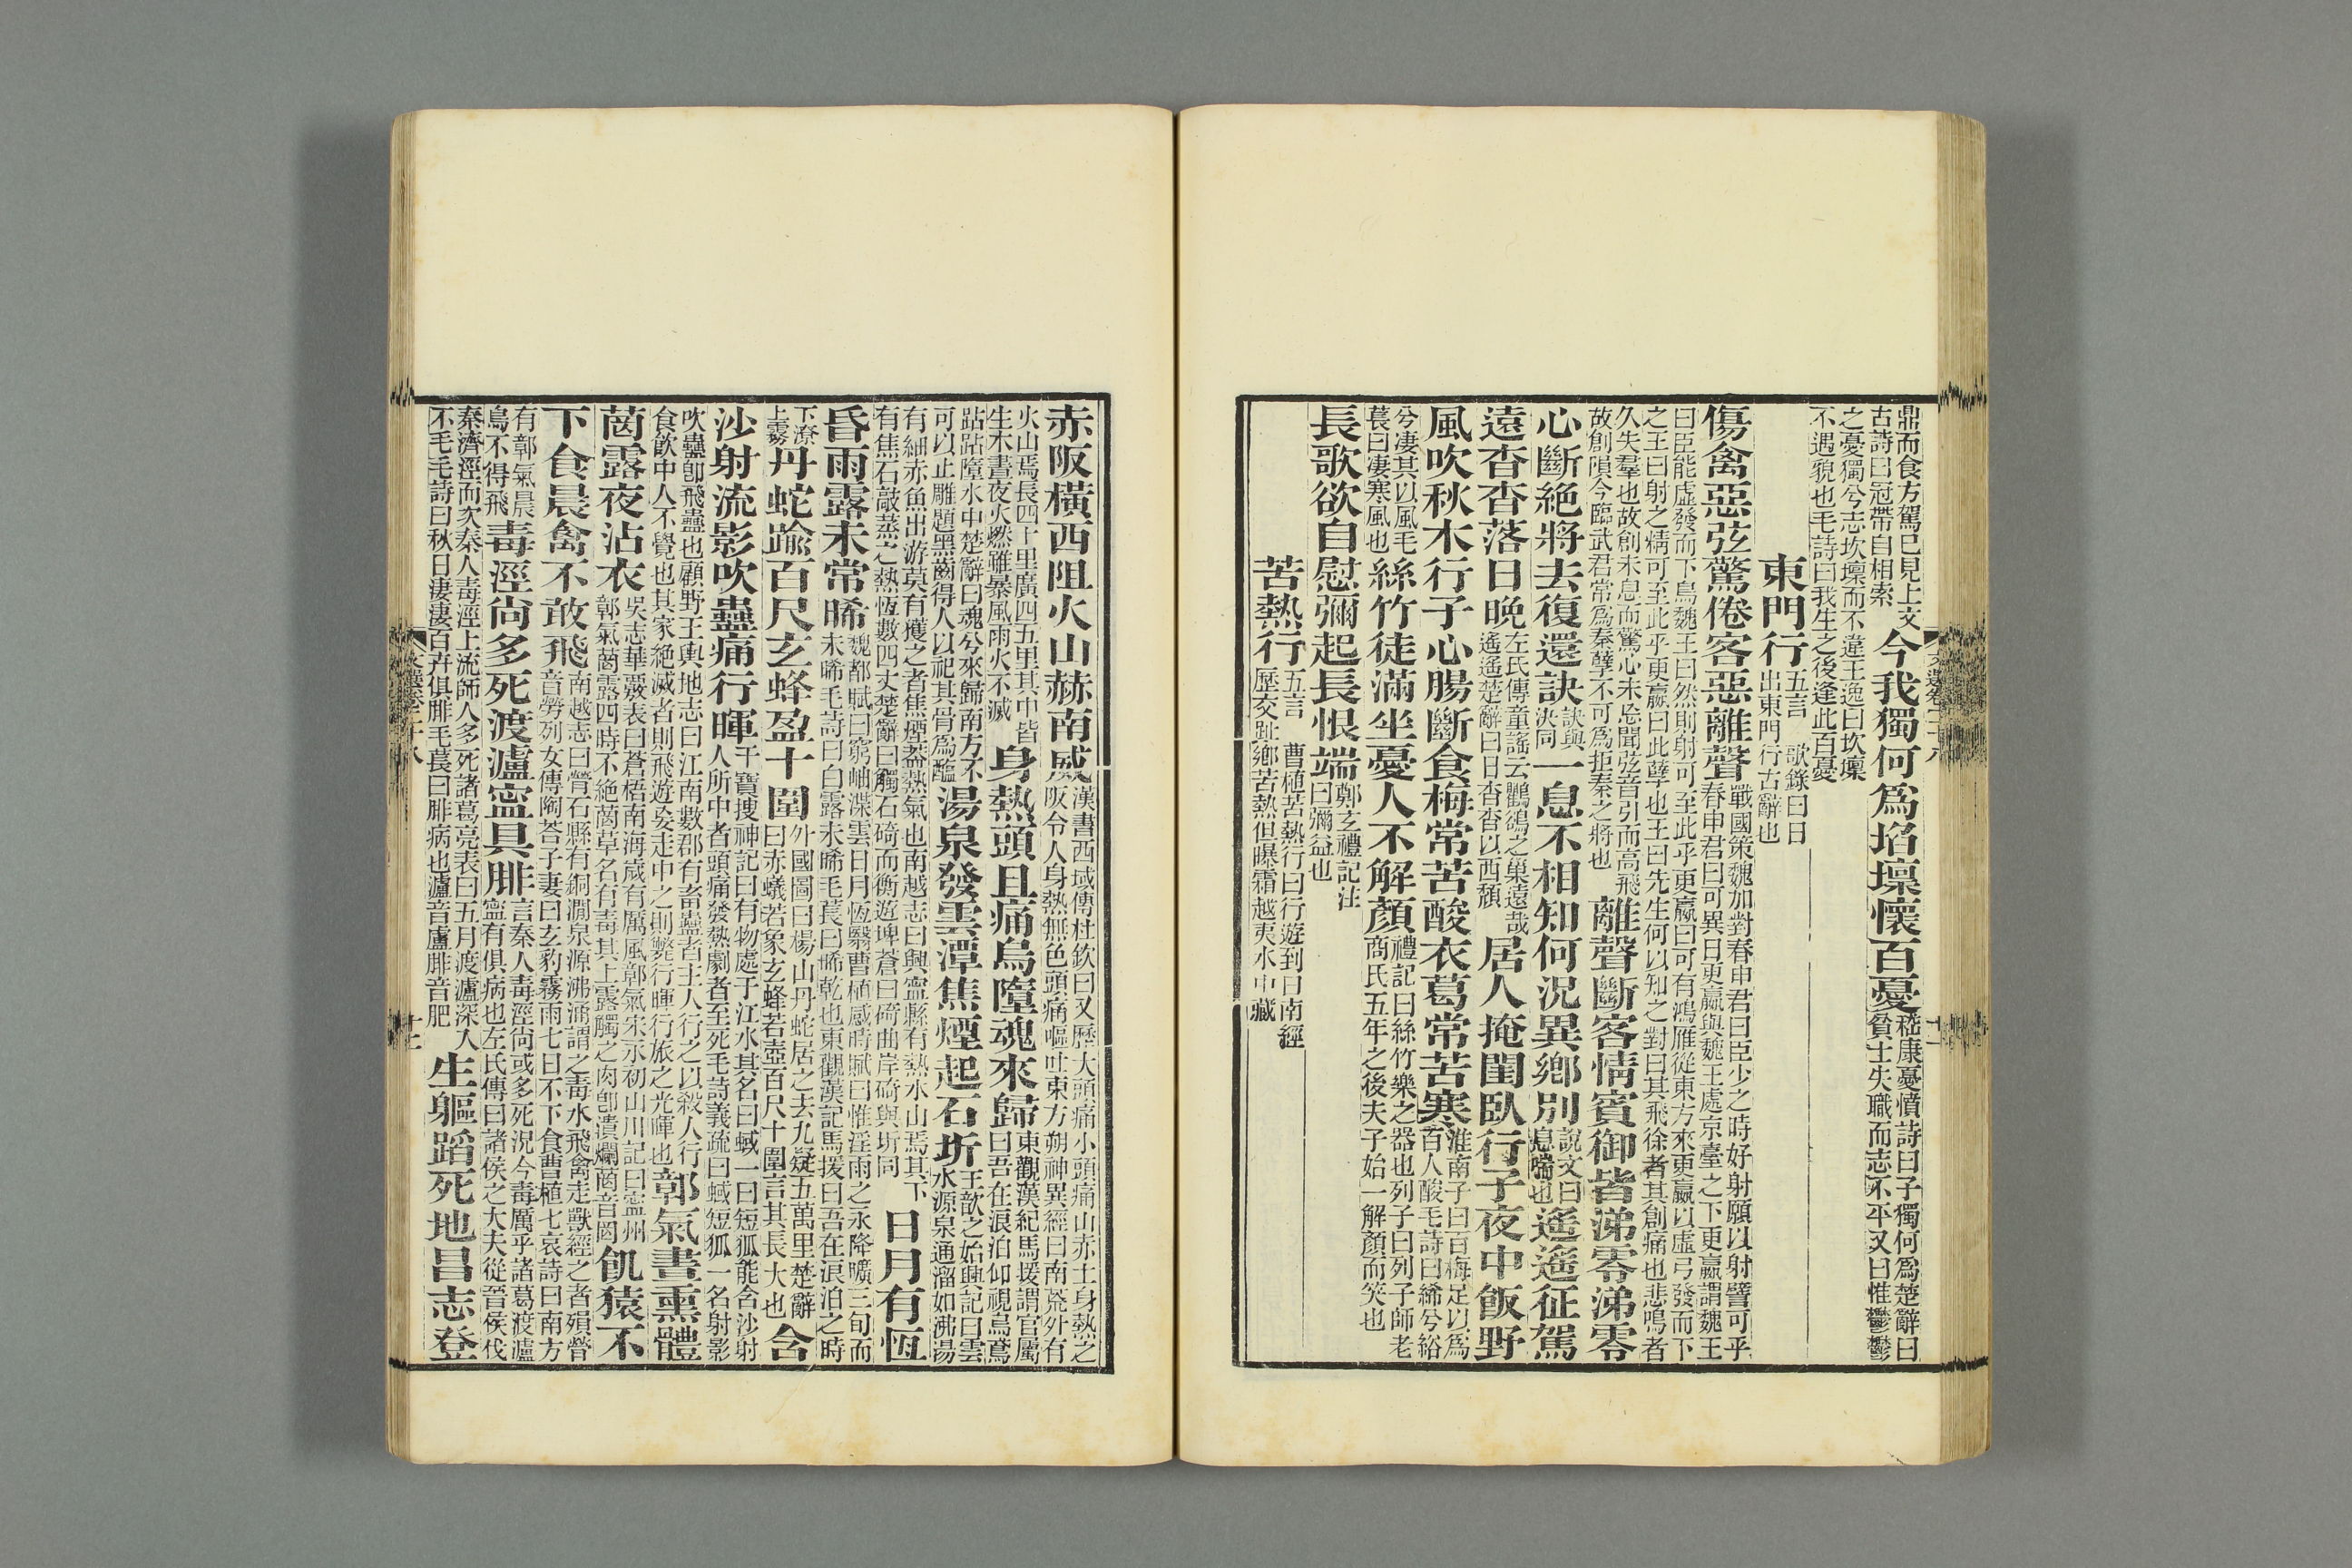 鼎而食方駕已見上文
古詩曰冠帶自相索
今我獨何爲埳壈懷百憂
嵇康憂憤詩曰子獨何爲楚辭曰
貧士失職而志不平又曰惟鬱鬱
之憂獨兮志坎壈而不違王逸曰坎壈
不遇貌也毛詩曰我生之後逢此百憂
東門行
五言 歌錄曰日
出東門行古辭也
傷禽惡弦驚倦客惡離聲
戰國策魏加對春申君曰臣少之時好射願以射譬可乎
春申君曰可異日更羸與魏王處京臺之下更羸謂魏王
曰臣能虛發而下鳥魏王曰然則射可至此乎更羸曰可有鴻雁從東方來更羸以虛弓發而下
之王曰射之精可至此乎更羸曰此孽也王曰先生何以知之對曰其飛徐者其創痛也悲鳴者
久失羣也故創未息而驚心未忘聞弦音引而高飛
故創隕今臨武君常爲秦孽不可爲拒秦之將也
離聲斷客情賓御皆涕零涕零
心斷絕將去復還訣
訣與
決同
一息不相知何況異鄉別
說文曰
息喘也
遙遙征駕
遠杳杳落日晚
左氏傳童謠云鸜鵒之巢遠哉
遙遙楚辭曰日杳杳以西頹
居人掩閨臥行子夜中飯野
風吹秋木行子心腸斷食梅常苦酸衣葛常苦寒
淮南子曰百梅足以爲
百人酸毛詩曰絺兮綌
兮淒其以風毛
萇曰淒寒風也
絲竹徒滿坐憂人不解顏
禮記曰絲竹樂之器也列子曰列子師老
商氏五年之後夫子始一解顏而笑也
長歌欲自慰彌起長恨端
鄭玄禮記注
曰彌益也
苦熱行
五言 曹植苦熱行曰行遊到日南經
歷交趾鄉苦熱但曝霜越夷水中藏
赤阪橫西阻火山赫南威
漢書西域傳杜欽曰又歷大頭痛小頭痛山赤土身熱之
阪令人身熱無色頭痛嘔吐東方朔神異經曰南荒外有
火山焉長四十里廣四五里其中皆
生木晝夜火燃雖暴風雨火不滅
身熱頭且痛鳥墮魂來歸
東觀漢紀馬援謂官屬
曰吾在浪泊仰視烏鳶
跕跕墮水中楚辭曰魂兮來歸南方不
可以止雕題黑齒得人以祀其骨爲醢
湯泉發雲潭焦煙起石圻
王歆之始興記曰雲
水源泉通溜如沸湯
有細赤魚出游莫有獲之者焦煙蓋熱氣也南越志曰興寧縣有熱水山焉其下
有焦石歊蒸之熱恆數四丈楚辭曰觸石碕而衡遊埤蒼曰碕曲岸碕與圻同
日月有恆
昏雨露未常晞
魏都賦曰窮岫渫雲日月恆翳曹植感時賦曰惟淫雨之永降曠三旬而
未晞毛詩曰白露未晞毛萇曰晞乾也東觀漢記馬援曰吾在浪泊之時
下潦
上霧
丹蛇踰百尺玄蜂盈十圍
外國圖曰楊山丹蛇居之去九疑五萬里楚辭
曰赤蟻若象玄蜂若壺百尺十圍言其長大也
含
沙射流影吹蠱痛行暉
干寶搜神記曰有物處于江水其名曰蜮一曰短狐能含沙射
人所中者頭痛發熱劇者至死毛詩義疏曰蜮短狐一名射影
吹蠱卽飛蠱也顧野王輿地志曰江南數郡有畜蠱者主人行之以殺人行
食飲中人不覺也其家絕滅者則飛遊妄走中之則斃行暉行旅之光暉也
鄣氣晝熏體
菵露夜沾衣
吳志華覈表曰蒼梧南海歲有厲風鄣氣宋永初山川記曰寧州
鄣氣菵露四時不絕菵草名有毒其上露觸之肉卽潰爛菵音罔
飢猿不
下食晨禽不敢飛
南越志曰膋石縣有銅澗泉源沸涌謂之毒水飛禽走獸經之者殞膋
音勞列女傳陶荅子妻曰玄豹霧雨七日不下食曹植七哀詩曰南方
有鄣氣晨
鳥不得飛
毒涇尚多死渡瀘寧具腓
言秦人毒涇尚或多死況今毒厲乎諸葛渡瀘
寧有俱病也左氏傳曰諸侯之大夫從晉侯伐
秦濟涇而次秦人毒涇上流師人多死諸葛亮表曰五月渡瀘深入
不毛毛詩曰秋日淒淒百卉俱腓毛萇曰腓病也瀘音盧腓音肥
生軀蹈死地昌志登